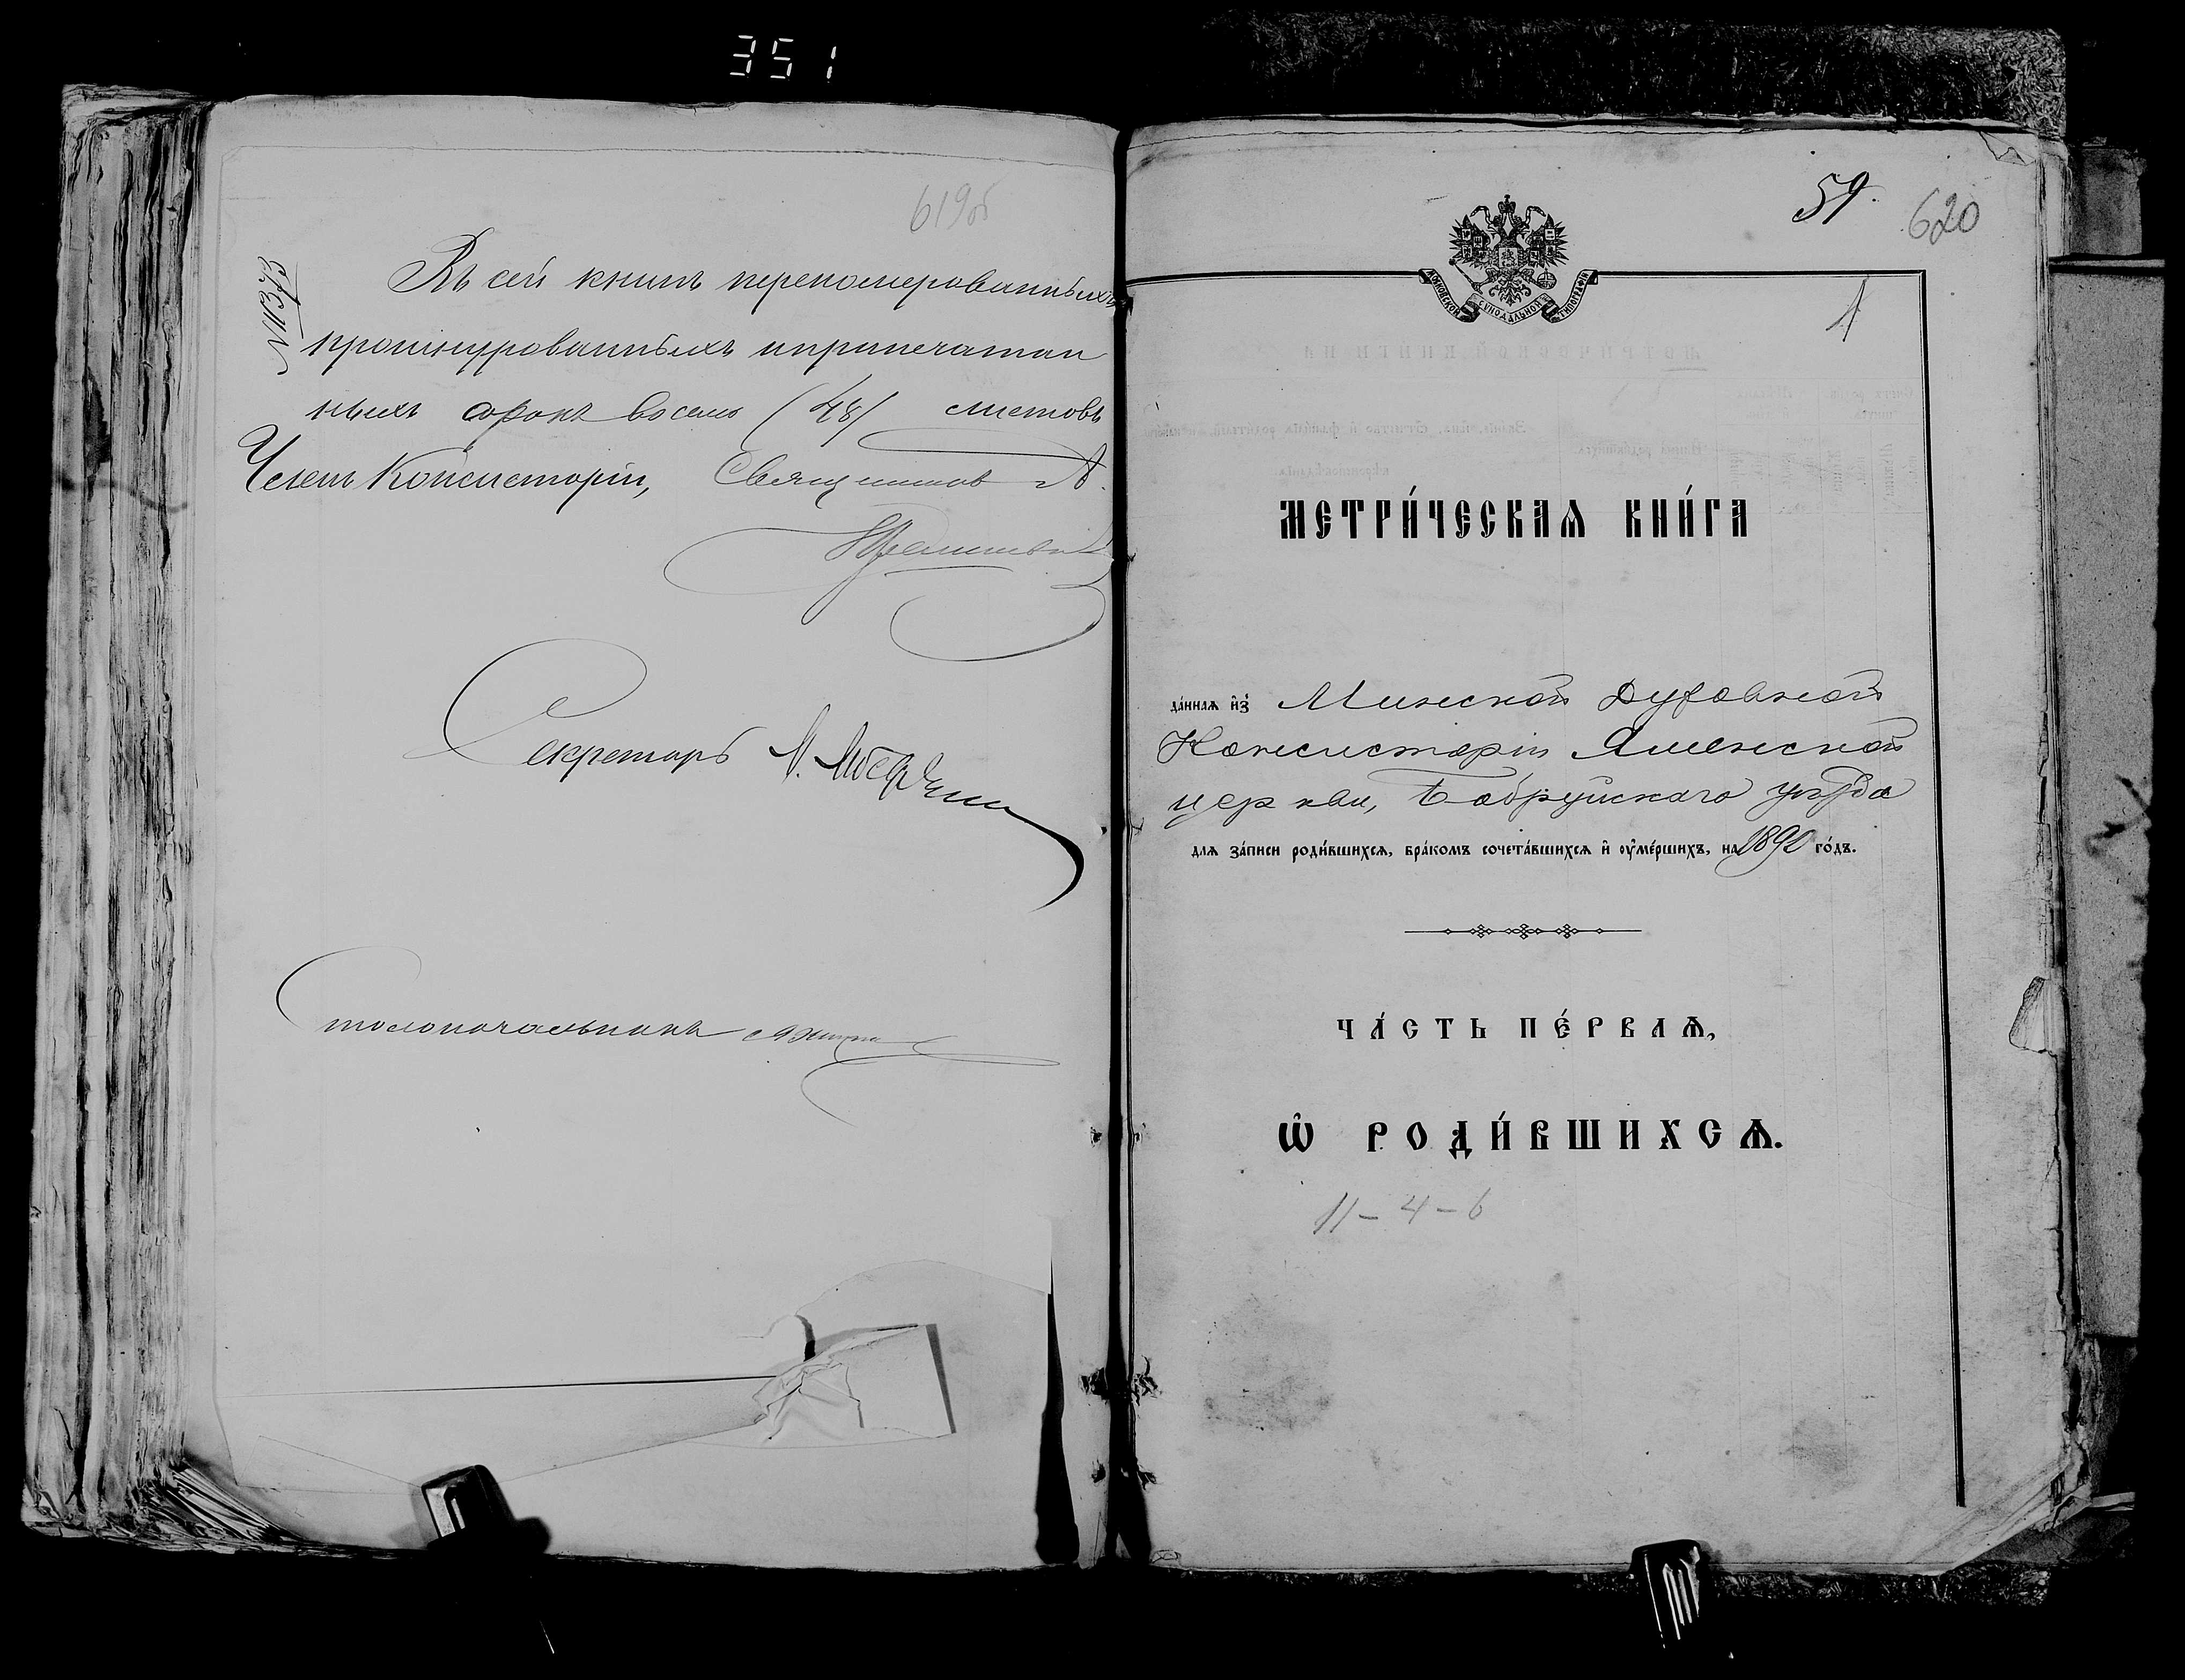 351
619об
№11373
Въ сей книгѣ перепомерованныхъ
прошнурованныхъ и припечатан
ныхъ сорокъ восемь (48) листовъ
Членъ Консисторіи, Священник А.
Секретарь
Столоначальникъ
59.
620
МОСКОВСКОЙ СУНОДАЛЬНОЙ ТИПОГРАФІИ
1
МЕТРИ́ЧЕСКАѦ КНИ́ГА
да́ннаѧ и҆з̾ Минской Духовной
Консисторіи Ясенской
церкви, Бобруйскаго уѣзда
для за́писи роди́вшихсѧ, бра́комъ сочета́вшихсѧ и҆ ᲂу҆ме́ршихъ, на 1890 го́дъ.
ЧА́СТЬ ПЕ́РВАѦ,
Ѽ РОДИ́ВШИХСѦ.
11-4-6